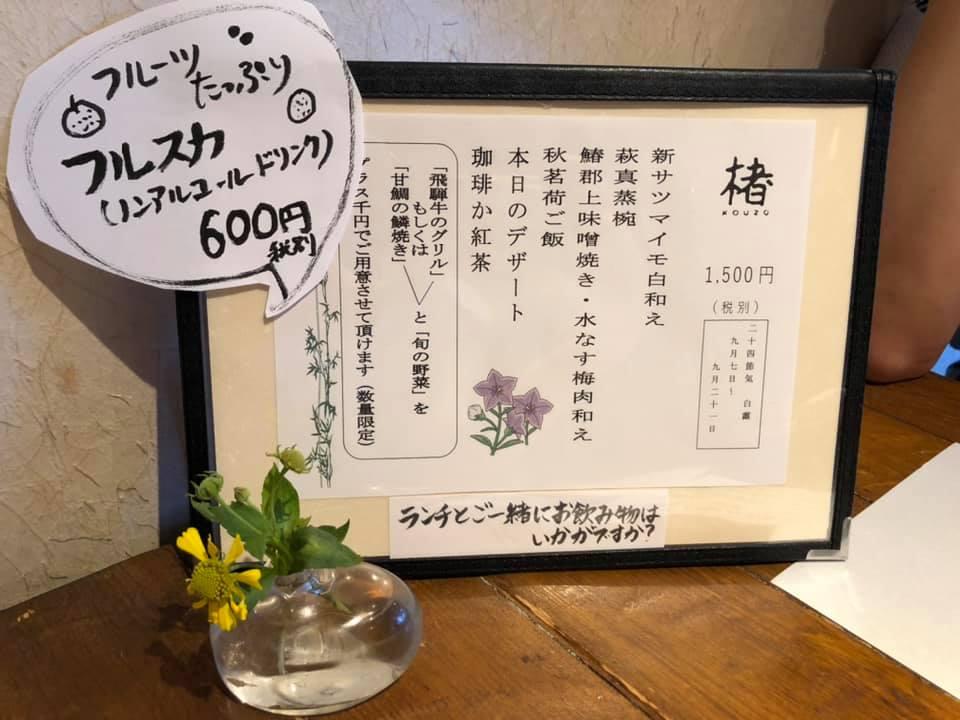 フルーツ
たっぷり
フルスカ
(ノンアルコールドリンク)
600円
税別
楮
KOUZO
1,500円
(税別)
二十四節気 白露
九月七日~
九月二十一日
新サツマイモ白和え
萩真蒸椀
鰆郡上味噌焼き・水なす梅肉和え
秋茗荷ご飯
本日のデザート
珈琲か紅茶
「飛騨牛のグリル」
もしくは
「甘鯛の鱗焼き」
と「旬の野菜」を
ラス千円でご用意させて頂けます(数量限定)
ランチとご一緒にお飲み物は
いかがですか?